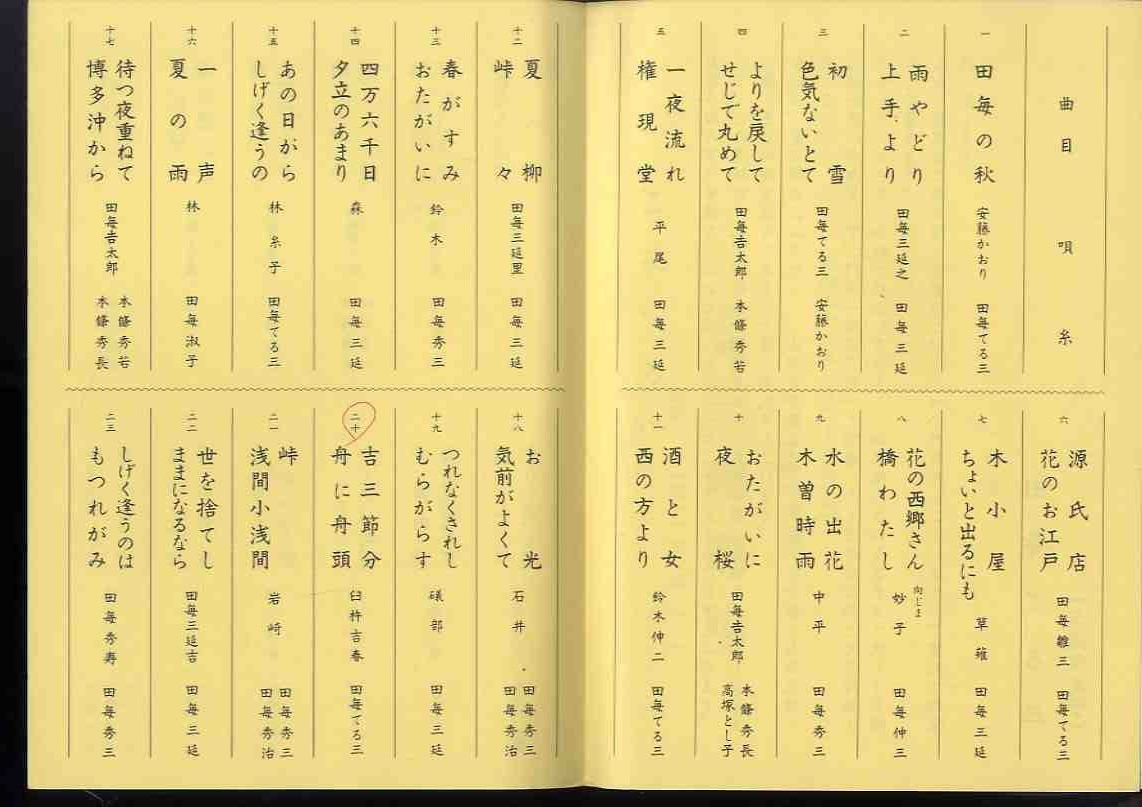 曲目　唄　糸
一
田毎の秋
安藤かおり
田毎てる三
二
雨やどり
上手より
田毎三延之
田毎三延
三
初雪
色気ないとて
田毎てる三
安藤かおり
四
よりを戻して
せじで丸めて
田毎吉太郎
本條秀若
五
一夜流れ
権現堂
平尾
田毎三延
六
源氏店
花のお江戸
田毎雛三
田毎てる三
七
木小屋
ちょいと出るにも
草薙
田毎三延
八
花の西郷さん
橋わたし
向じま
妙子
田毎伸三
九
水の出花
木曽時雨
中平
田毎秀三
十
おたがいに
夜桜
田毎吉太郎
本條秀長
高塚とし子
十一
酒と女
西の方より
鈴木伸二
田毎てる三
十二
夏柳
峠々
田毎三延里
田毎三延
十三
春がすみ
おたがいに
鈴木
田毎秀三
十四
四万六千日
夕立のあまり
森
田毎三延
十五
あの日から
しげく逢うの
林糸子
田毎てる三
十六
一声
夏の雨
林
田毎淑子
十七
待つ夜重ねて
博多沖から
田毎吉太郎
本條秀若
本條秀長
十八
お光
気前がよくて
石井
田毎秀三
田毎秀治
十九
つれなくされし
むらがらす
礒部
田毎三延
二十
吉三節分
舟に舟頭
臼杵吉春
田毎てる三
二一
峠
浅間小浅間
岩崎
田毎秀三
田毎秀治
二二
世を捨てし
ままになるなら
田毎三延吉
田毎三延
二三
しげく逢うのは
もつれがみ
田毎秀寿
田毎秀三